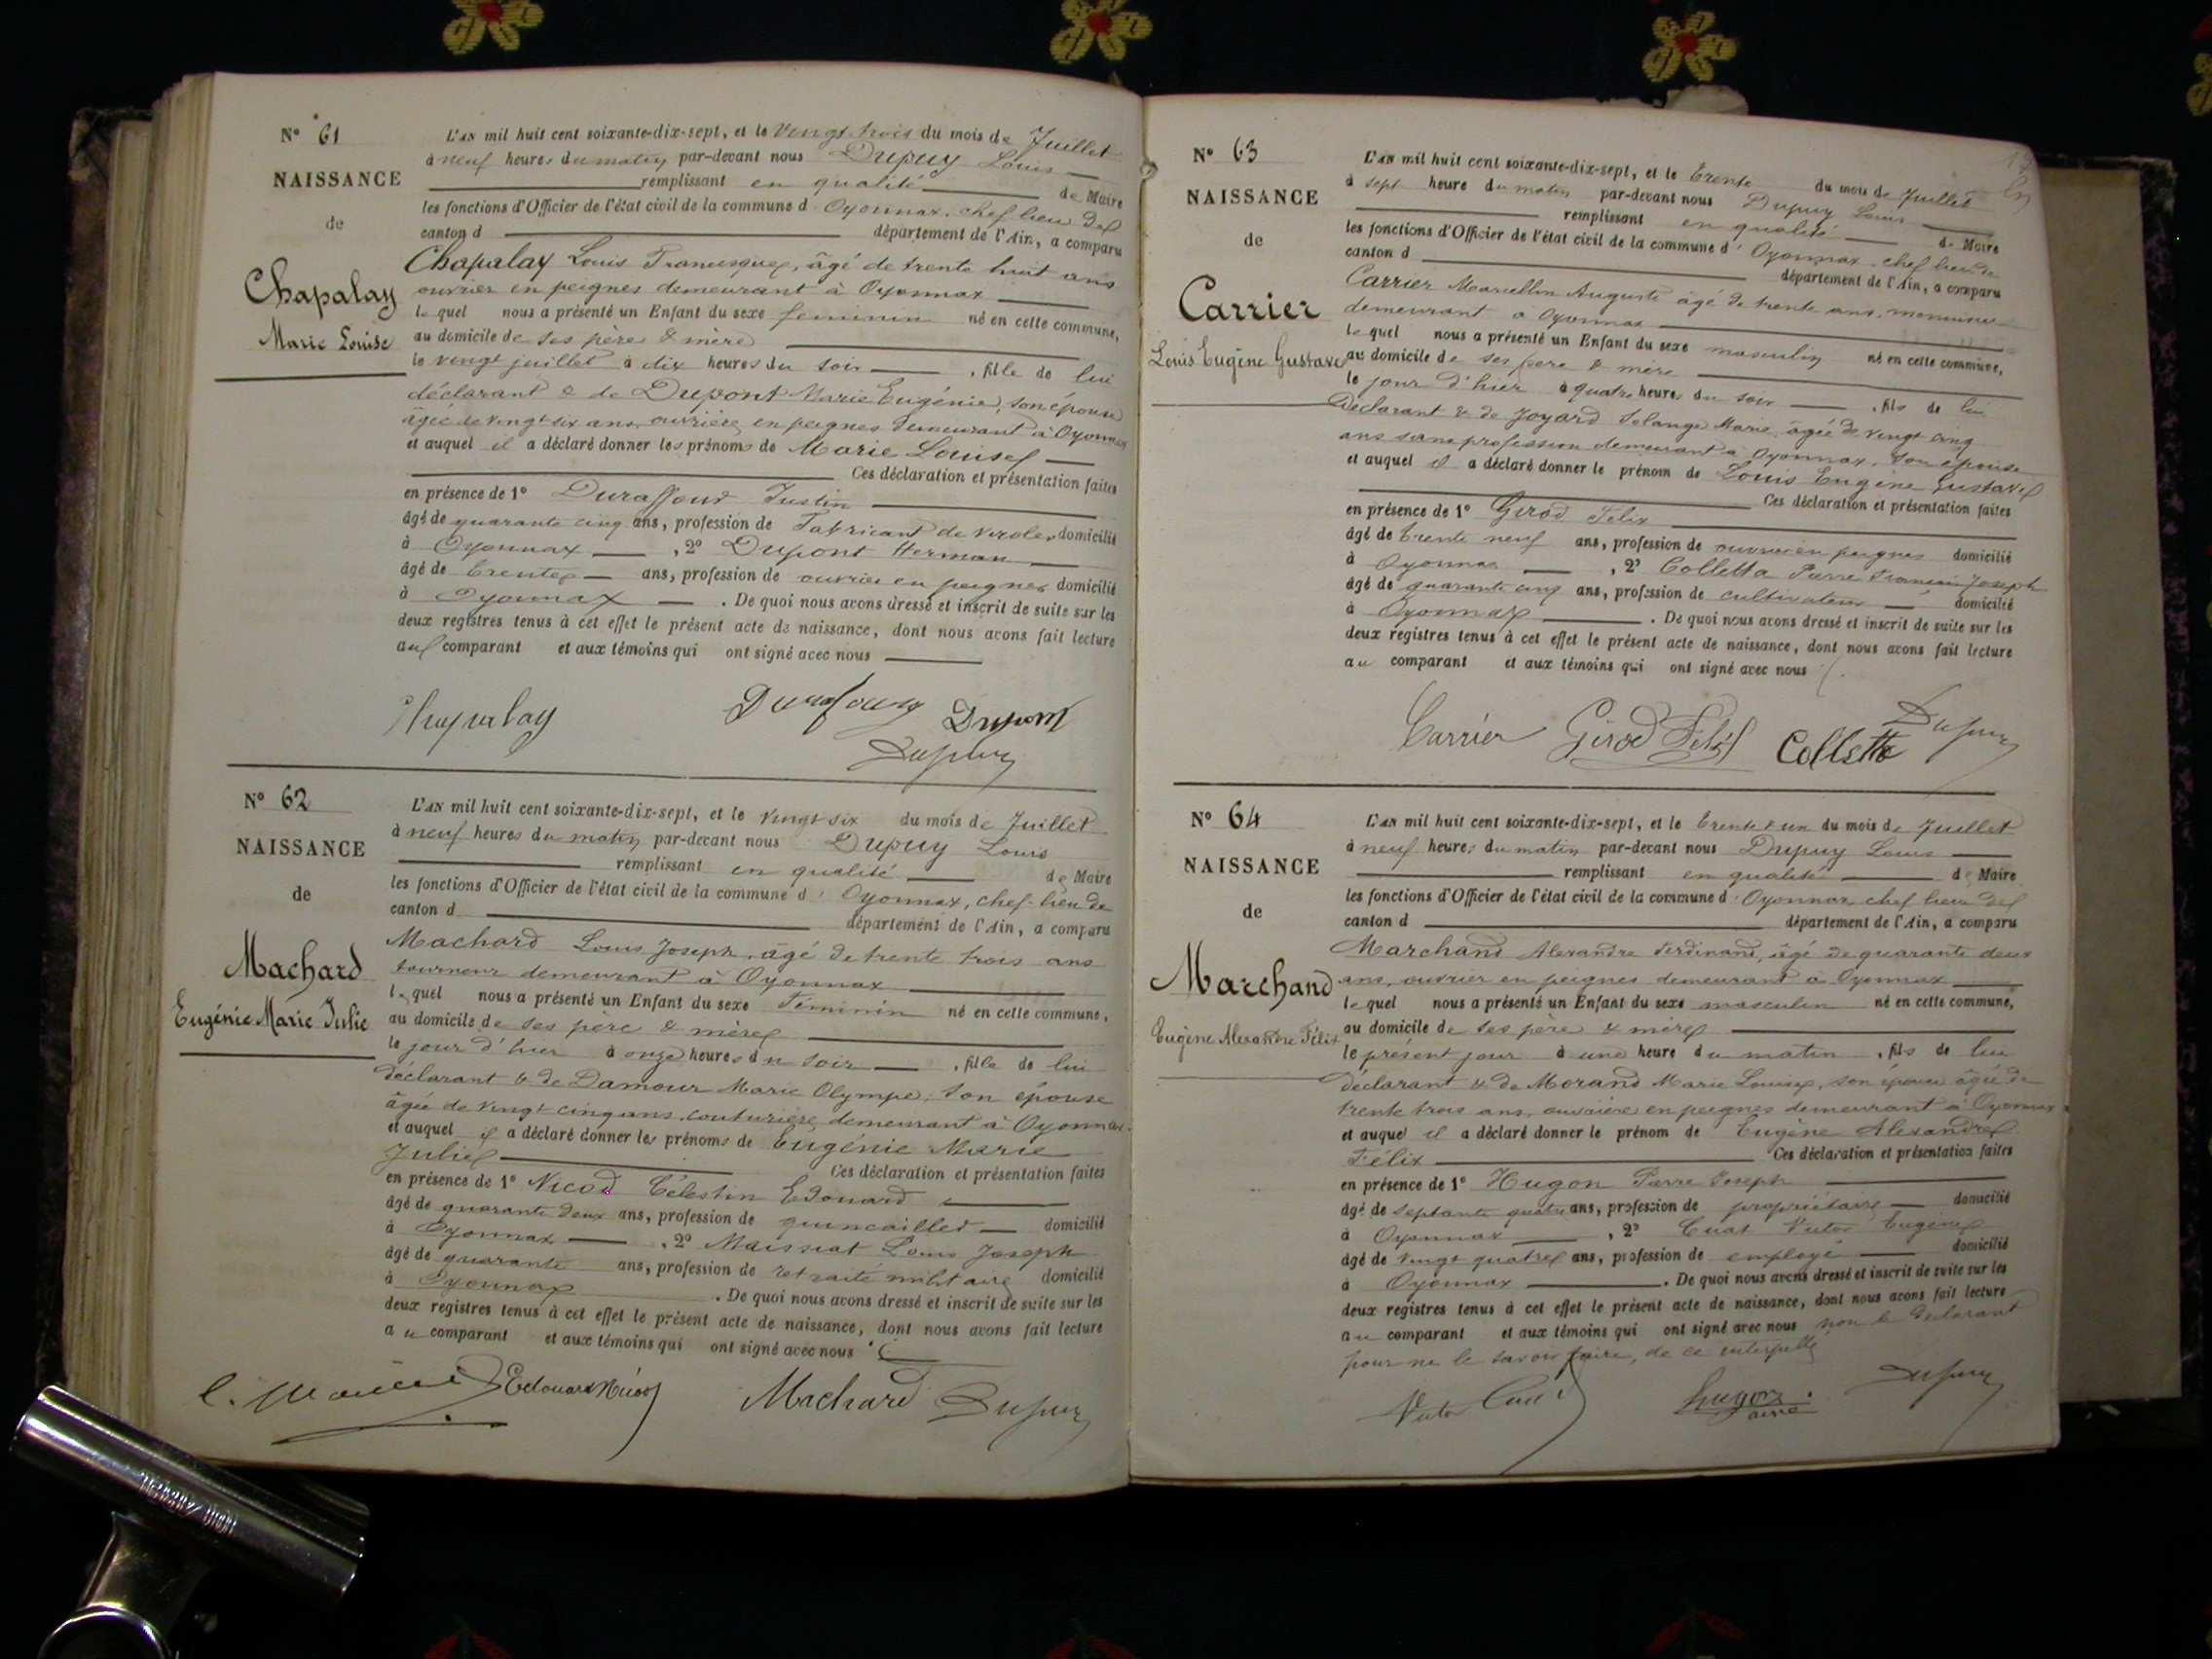 N° 61
NAISSANCE
de
Chapalay
Marie Louise
L'AN mil huit cent soixante-dix-sept, et le vingt trois du mois de Juillet
à neuf heures du matin par-devant nous Dupuy Louis
remplissant en qualité de Maire
les fonctions d'Officier de l'état civil de la commune d'Oyonnax, chef lieu de
canton d département de l'Ain, a comparu
Chapalay Louis Francisque, âgé de trente huit ans
ouvrier en peignes demeurant à Oyonnax
lequel nous a présenté un Enfant du sexe feminin né en cette commune,
au domicile de ses père & mère
le vingt juillet à dix heures du soir , fille de lui
déclarant & de Dupont Marie Eugénie, son épouse
âgée de vingt six ans, ouvrière en peignes demeurant à Oyonnax
et auquel il a déclaré donner les prénoms de Marie Louise
Ces déclaration et présentation faites
en présence de 1° Duraffour Justin
âgé de quarante cinq ans, profession de Fabricant de viroles domicilié
à Oyonnax , 2° Dupont Herman
âgé de trente ans, profession de ouvrier en peignes domicilié
à Oyonnax . De quoi nous avons dressé et inscrit de suite sur les
deux registres tenus à cet effet le présent acte de naissance, dont nous avons fait lecture
au comparant et aux témoins qui ont signé avec nous
Chapalay Duraffourg Dupont
Dupuy
N° 62
NAISSANCE
de
Machard
Eugénie Marie Julie
L'AN mil huit cent soixante-dix-sept, et le vingt six du mois de Juillet
à neuf heures du matin par-devant nous Dupuy Louis
remplissant en qualité de Maire
les fonctions d'Officier de l'état civil de la commune d'Oyonnax, chef-lieu de
canton d département de l'Ain, a comparu
Machard Louis Joseph, âgé de trente trois ans
tourneur demeurant à Oyonnax
lequel nous a présenté un Enfant du sexe Féminin né en cette commune,
au domicile de ses père & mère
le jour d'hier à onze heures du soir , fille de lui
déclarant & de Damour Marie Olympe, son épouse
âgée de vingt-cinq ans, couturière demeurant à Oyonnax
et auquel il a déclaré donner les prénoms de Eugénie Marie
Julie Ces déclaration et présentation faites
en présence de 1° Nicod Célestin Edouard
âgé de quarante deux ans, profession de quincailler domicilié
à Oyonnax , 2° Maissiat Louis Joseph
âgé de quarante ans, profession de retraité militaire domicilié
à Oyonnax . De quoi nous avons dressé et inscrit de suite sur les
deux registres tenus à cet effet le présent acte de naissance, dont nous avons fait lecture
au comparant et aux témoins qui ont signé avec nous
Edouard Nicod Machard Dupuy
N° 63
NAISSANCE
de
Carrier
Louis Eugène Gustave
L'AN mil huit cent soixante-dix-sept, et le trente du mois de Juillet
à sept heure du matin par-devant nous Dupuy Louis
remplissant en qualité de Maire
les fonctions d'Officier de l'état civil de la commune d'Oyonnax chef lieu de
canton d département de l'Ain, a comparu
Carrier Marcellin Auguste âgé de trente ans, menuisier
demeurant à Oyonnax
lequel nous a présenté un Enfant du sexe masculin né en cette commune,
au domicile de ses père & mère
le jour d'hier à quatre heures du soir , fils de lui
Déclarant & de Joyard Solange Marie, âgée de vingt cinq
ans sans profession demeurant à Oyonnax, son épouse
et auquel il a déclaré donner le prénom de Louis Eugène Gustave
Ces déclaration et présentation faites
en présence de 1° Girod Felix
âgé de trente neuf ans, profession de ouvrier en peignes domicilié
à Oyonnax , 2° Colletta Pierre François Joseph
âgé de quarante cinq ans, profession de cultivateur domicilié
à Oyonnax . De quoi nous avons dressé et inscrit de suite sur les
deux registres tenus à cet effet le présent acte de naissance, dont nous avons fait lecture
au comparant et aux témoins qui ont signé avec nous
Carrier Girod Félix Colletta Dupuy
N° 64
NAISSANCE
de
Marchand
Eugène Alexandre Félix
L'AN mil huit cent soixante-dix-sept, et le trente & un du mois de Juillet
à neuf heures du matin par-devant nous Dupuy Louis
remplissant en qualité de Maire
les fonctions d'Officier de l'état civil de la commune d'Oyonnax chef lieu de
canton d département de l'Ain, a comparu
Marchand Alexandre Ferdinand, âgé de quarante deux
ans, ouvrier en peignes demeurant à Oyonnax
lequel nous a présenté un Enfant du sexe masculin né en cette commune,
au domicile de ses père & mère
le présent jour à une heure du matin , fils de lui
déclarant & de Morand Marie Louise, son épouse âgée de
trente trois ans, ouvrière en peignes demeurant à Oyonnax
et auquel il a déclaré donner le prénom de Eugène Alexandre
Félix Ces déclaration et présentation faites
en présence de 1° Hugon Pierre Joseph
âgé de septante quatre ans, profession de propriétaire domicilié
à Oyonnax , 2° Cuat Victor Eugène
âgé de vingt quatre ans, profession de employé domicilié
à Oyonnax . De quoi nous avons dressé et inscrit de suite sur les
deux registres tenus à cet effet le présent acte de naissance, dont nous avons fait lecture
au comparant et aux témoins qui ont signé avec nous non le déclarant
pour ne le savoir faire, de ce interpellé
Victor Cuat hugon ainé Dupuy